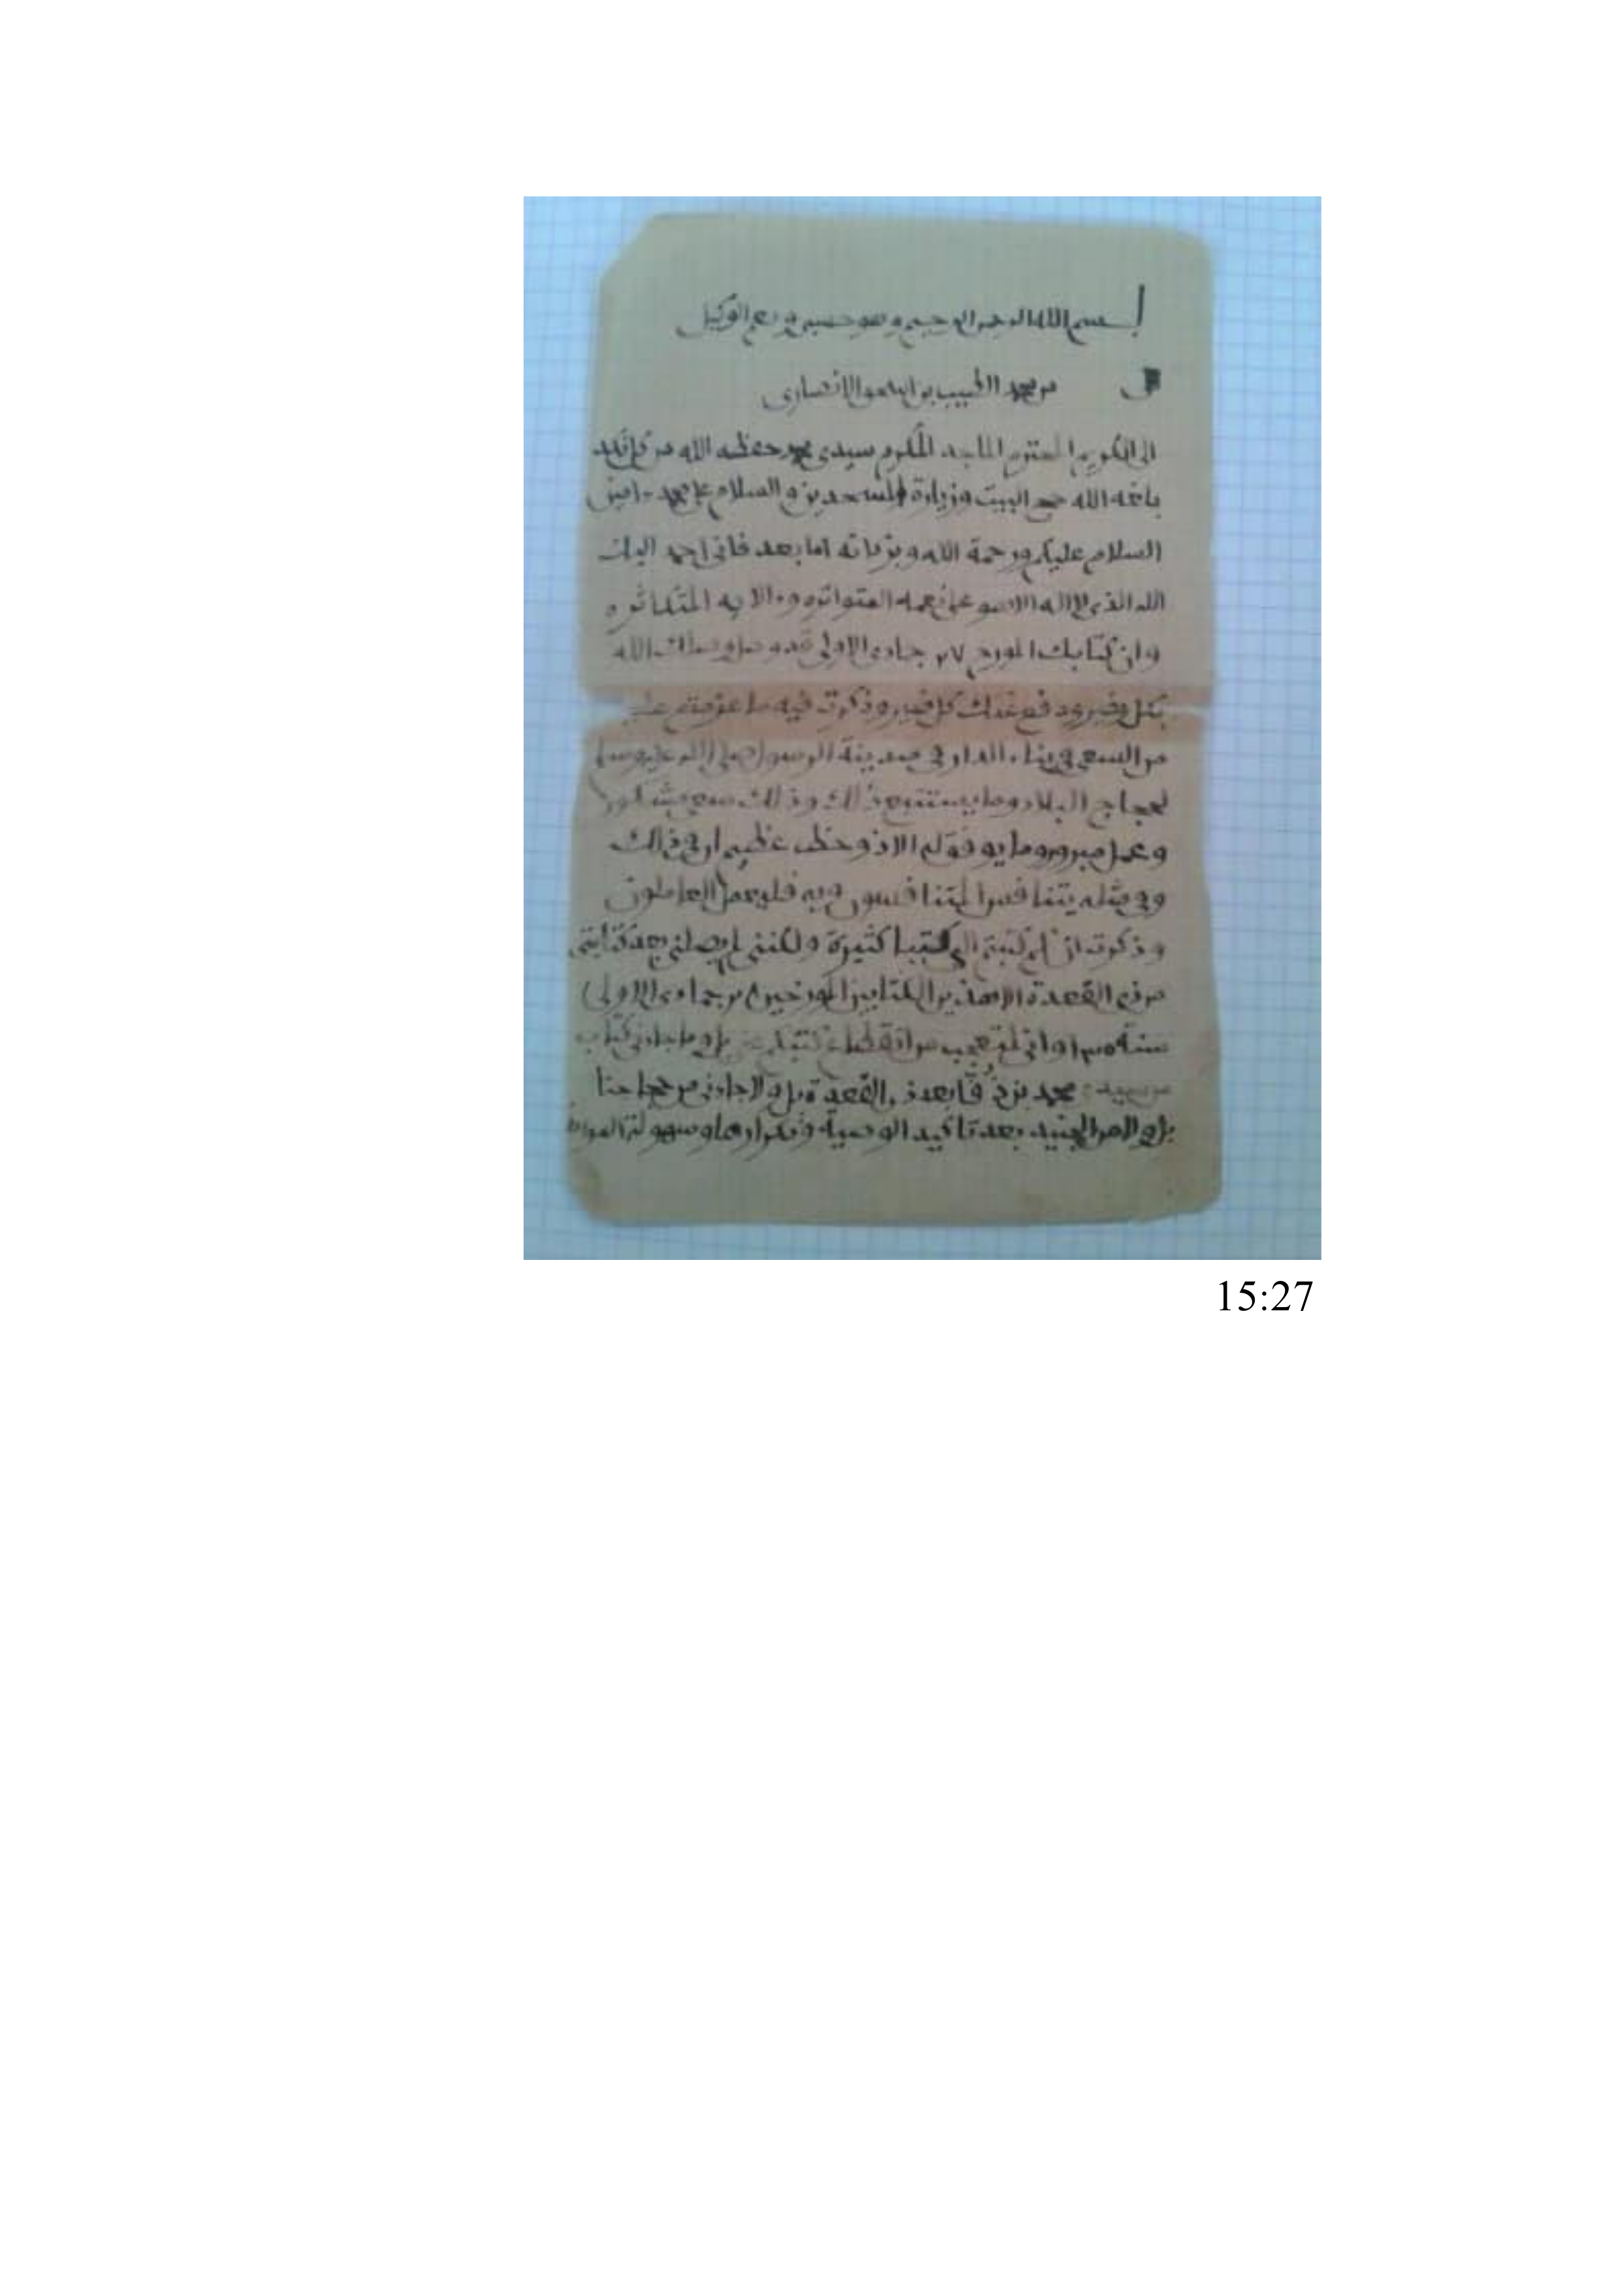 بسم الله الرحمن الرحيم وهو حسبي ونعم الوكيل
من محمد الطيب بن الانصاري
الى الكريم المحترم الماجد المكرم سيدي محمد حفظه الله من كل
الله حج البيت وزيارة المسجدين والسلام على محمد ءامين
السلام عليكم ورحمة الله وبركاته اما بعد فاني احمد اليك
الله الذي لا اله الا هو على نعمه المتواتره وءالايه المتكاثره
وان كتابك المورخ ٢٧ جمادى الاولى قد وصل وصلك الله
بكل خير ودفع عنك كل ضير وذكرت فيه ما عزمتم عليه
من السعي في بناء الدار في مدينة الرسول صلى الله عليه وسلم
لحجاج البلاد وما يستتبع ذلك وذلك سعي مشكور
وعمل مبرور وما يوفق له الا ذو حظ عظيم ار في ذالك
وفي مثله يتنافس المتنافسون وبه فليعمل العاملون
وذكرت انكم كتبتم الي كتبا كثيرة ولكنني لم يصلني بعد كتابتي
من ذي القعدة الا هذين الكتابين المورخين من جمادى الاولى
سنة واني لمتعجب من انقطاع كتبكم عني بل وما جاءني كتاب
من سيدي محمد بن بعد ذي القعدة بل ولا جاءني من حجاجنا
بعد تاكيد الوصية وتكرارها وسهولة
15:27